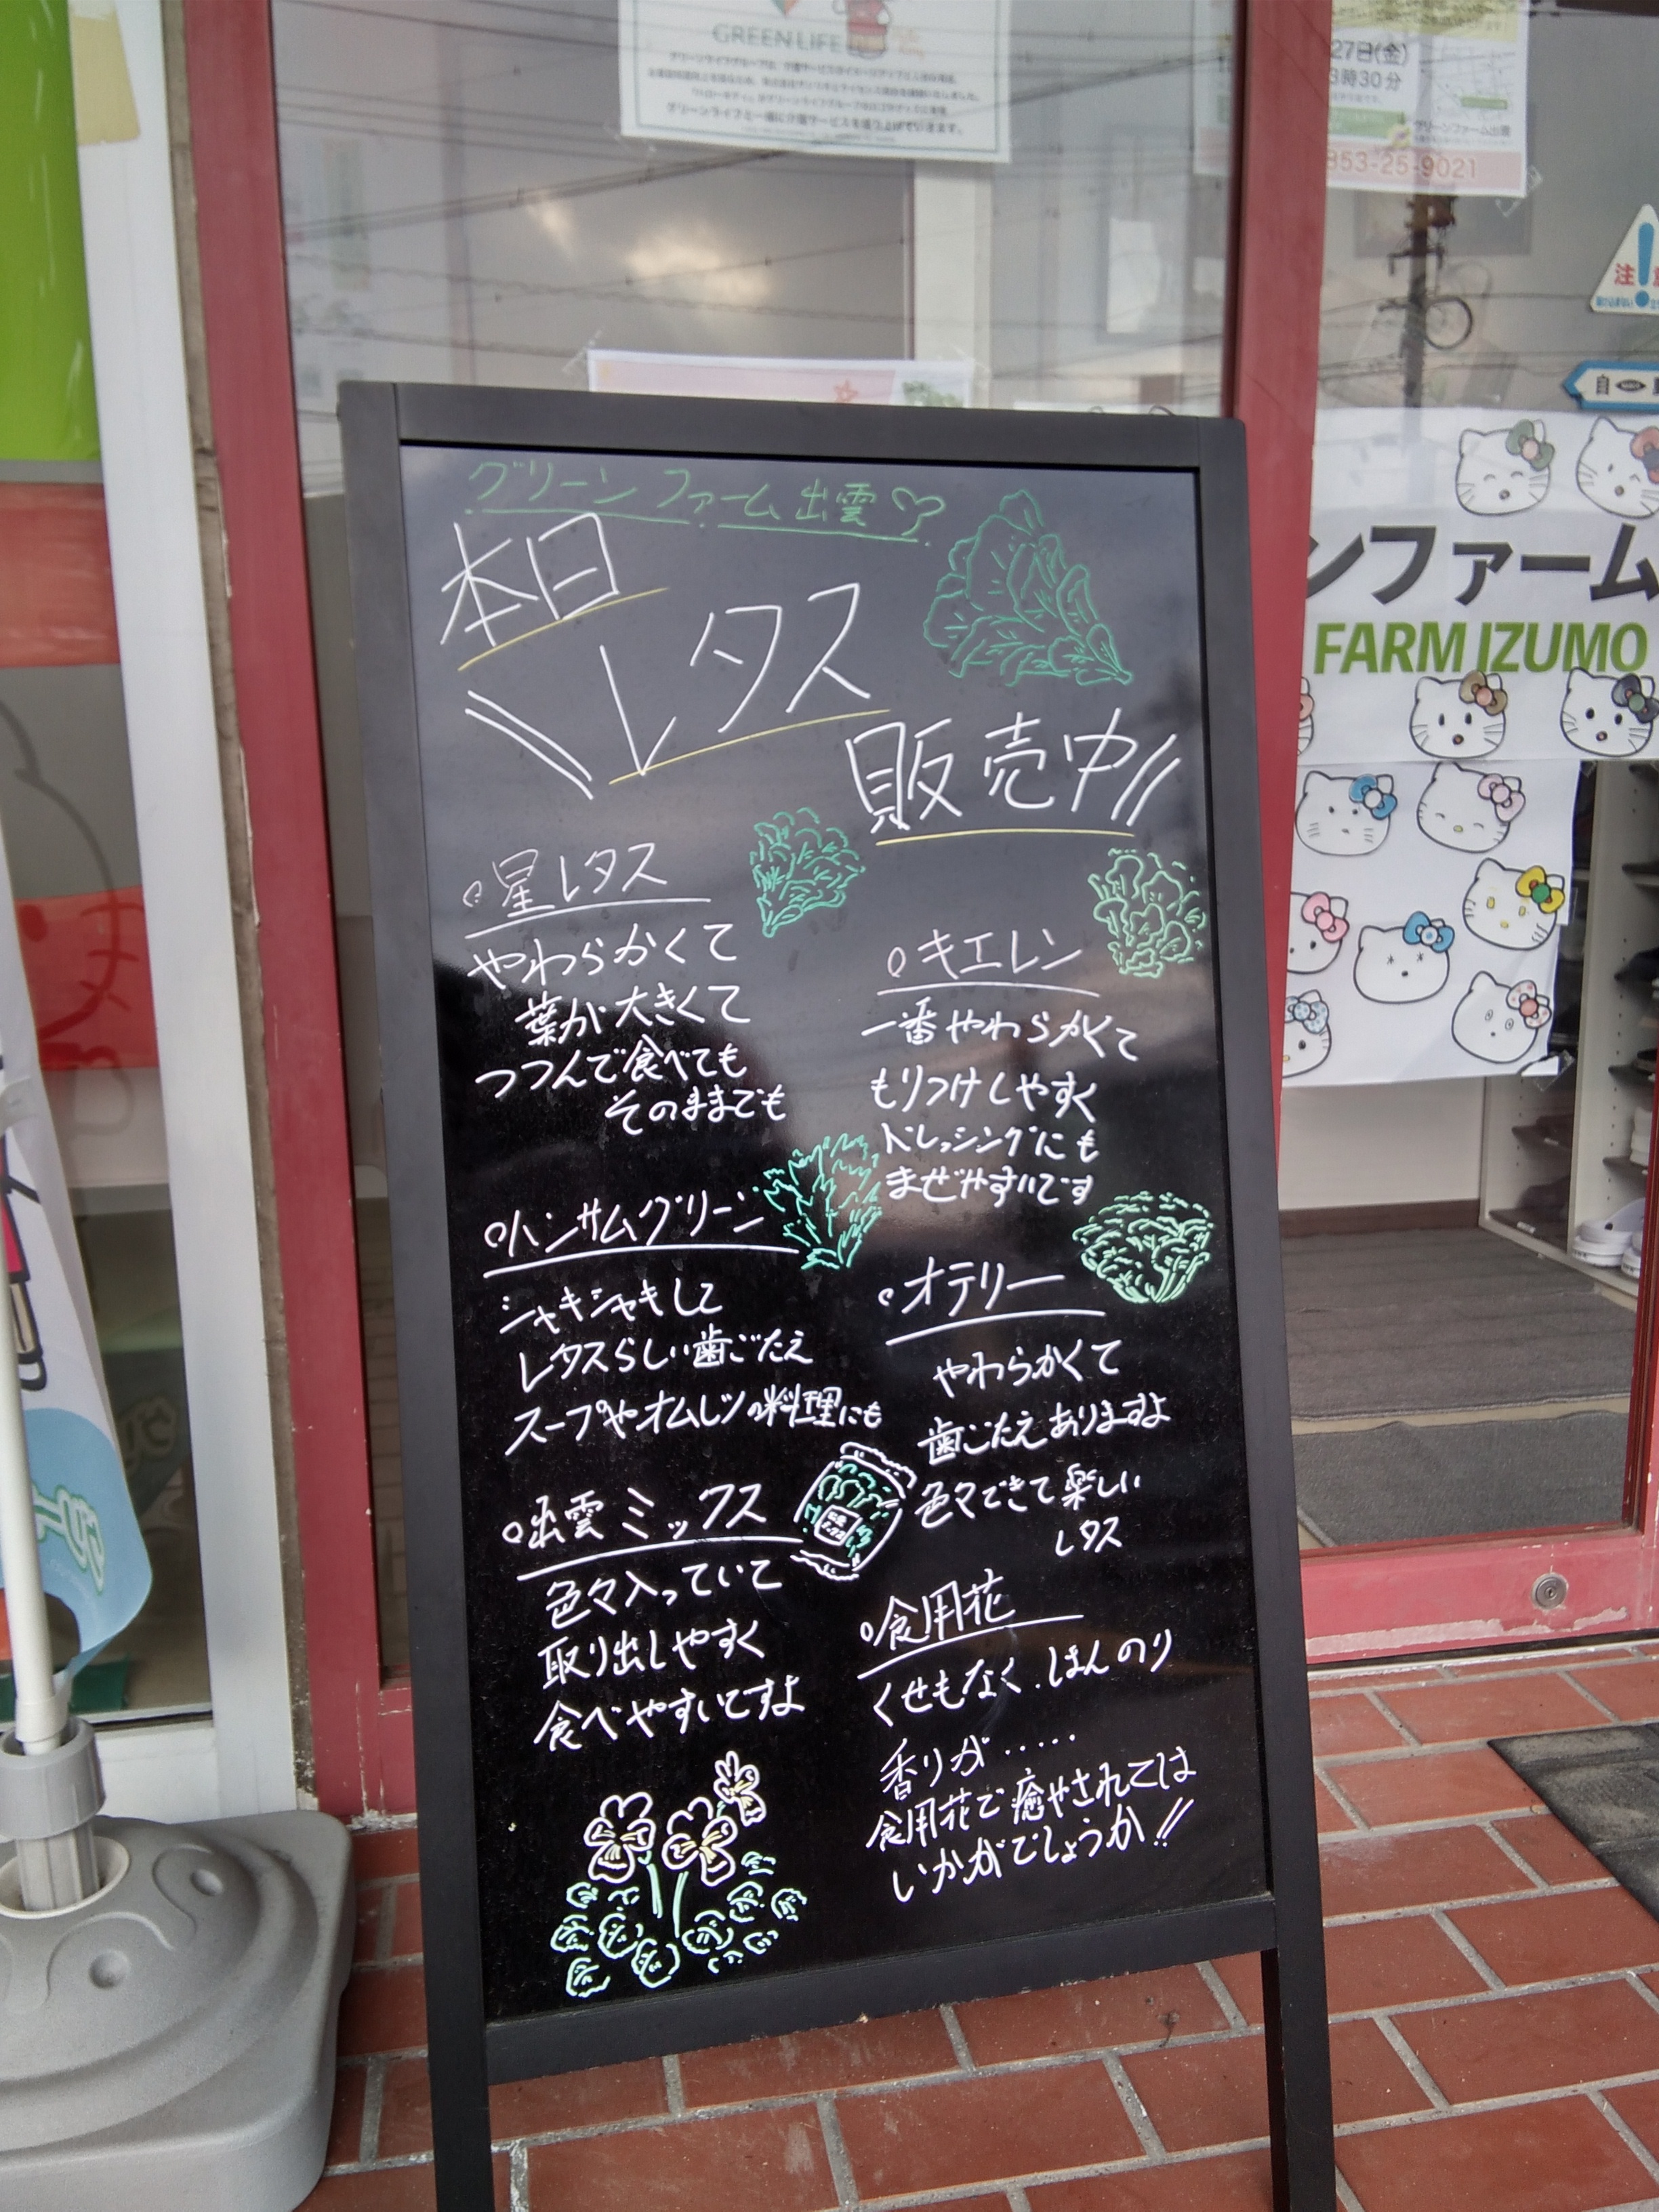 GREEN LIFE
グリーンライフと一緒に介護サービスを盛り上げていきます。
27日(金)
3時30分
グリーンファーム出雲
853-25-9021
注意
自
ンファーム
FARM IZUMO
グリーンファーム出雲
本日
レタス
販売中
星レタス
やわらかくて
葉が大きくて
つつんで食べても
そのままでも
ハンサムグリーン
シャキシャキして
レタスらしい歯ごたえ
スープやオムレツの料理にも
出雲ミックス
色々入っていて
取り出しやすく
食べやすいてすよ
キエレン
一番やわらかくて
もりつけしやすく
ドレッシングにも
まぜやすいです
オテリー
やわらかくて
歯ごたえありますよ
色々できて楽しい
レタス
食用花
くせもなく、ほんのり
香りが……
食用花で癒やされては
いかがでしょうか!!